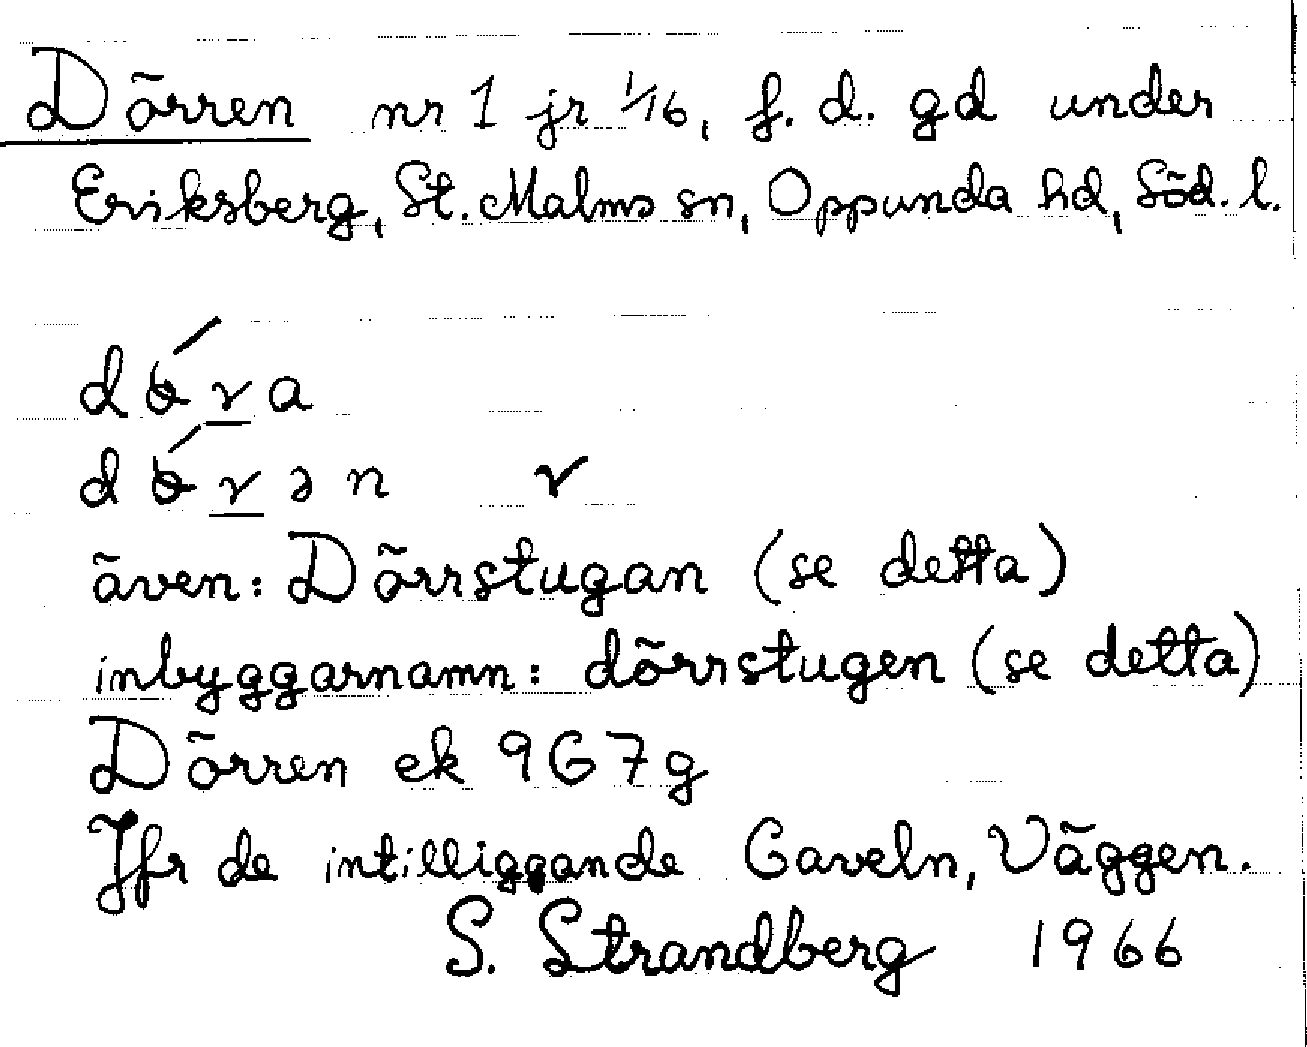 Dörren nr 1 jr 1/16, f. d. gd under
Eriksberg, St. Malms sn, Oppunda hd, Söd. l.
dɵ́ra
dɵ́rən r
även: Dörrstugan (se detta)
inbyggarnamn: dörrstugen (se detta)
Dörren ek 9G7g
Jfr de intilliggande Gaveln, Väggen.
S. Strandberg 1966